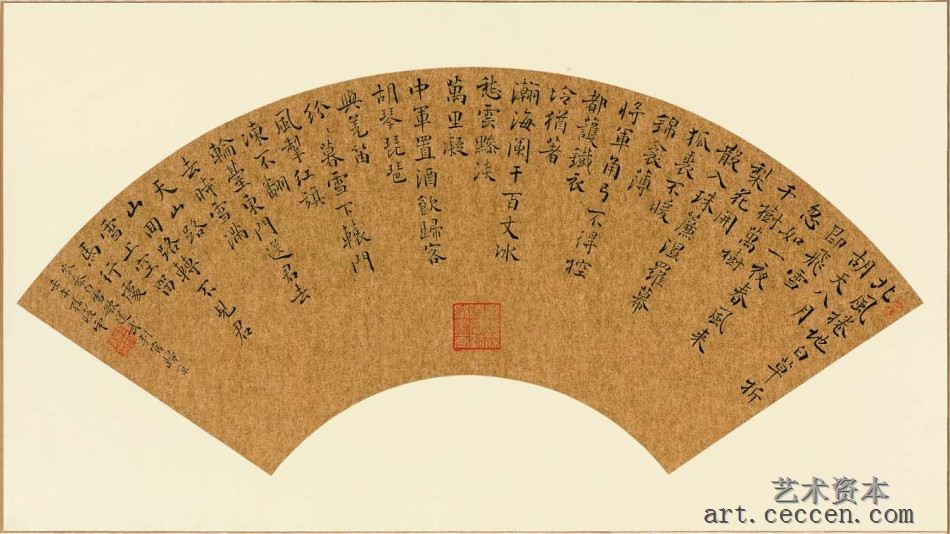 北風捲地白草折
胡天八月
即飛雪
忽如一夜春風来
千樹萬樹
梨花開
散入珠簾濕羅幕
狐裘不暖
錦衾薄
將軍角弓不得控
都護鐵衣
冷猶著
瀚海闌干百丈冰
愁雲黲淡
萬里凝
中軍置酒飲歸客
胡琴琵琶
與羌笛
紛〻暮雪下轅門
風掣紅旗
凍不翻
輪臺東門送君去
去時雪滿
天山路
山回路轉不見君
雪上空留
馬行處
岑參白雪歌送武判官歸京
艺术资本
art.ceccen.com